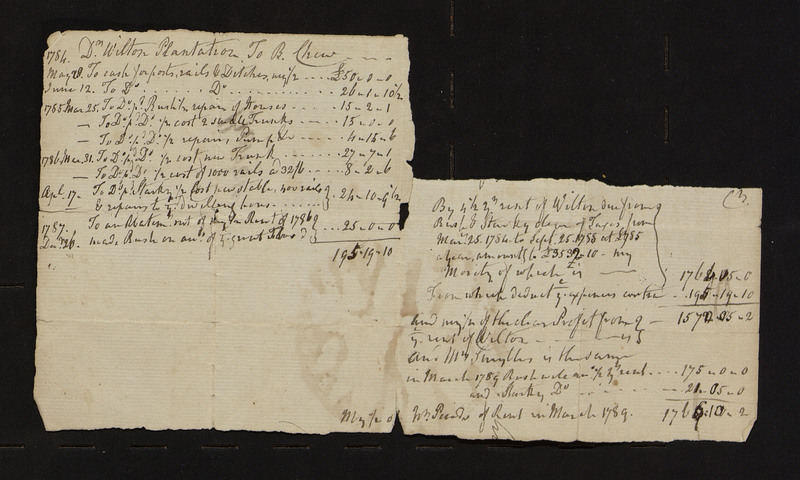 1784. Dr. Wilton Plantation To B. Chew
May 28. To cash for posts, rails & Ditches, my ½ .... £50-0-0
June 12. To Do ...... Do ............ 26-1-10½
1785 Mar. 25. To Do pd Rush ½ repairs of Houses .... 15-2-1
— To Do pd Do ½ cost 2 Trunks ---- 15-0-0
— To Do pd Do ½ repairs Pump &c ---- 4-15-6
1786 Mar. 31. To Do pd Do ½ cost new Trunk ...... 27-7-1
— To Do pd Do ½ cost of 1000 rails a 32/6 ... 8-2-6
Apl. 17. To Do pd Starky ½ cost new stable, 400 rails
& repairs to ye Dwelling house } 24-10-9½
1787. To an Abatemt of my ½ ye Rent of 1786
Decr 26. made Rush on accot of ye great } 25-0-0
195-19-10
(3.
By 4½ yrs rent of Wilton due from
Rush & Starky from
Mar. 25. 1784 to Sept. 25. 1788 at £785
a year, amounts to £3532-10- my
Moiety of which is — 1766-05-0
From which deduct ye expences contra .. 195-19-10
and my ½ of the clear Profit from
ye rent of Wilton — is } 1570-05-2
and Mrs Smyths is the same
in March 1789 Rush owes my ½ yrs rent .... 175-0-0
and Starky Do ....... 21-05-0
My ½ of Wn Plan of Rent in March 1789. 1766-10-2